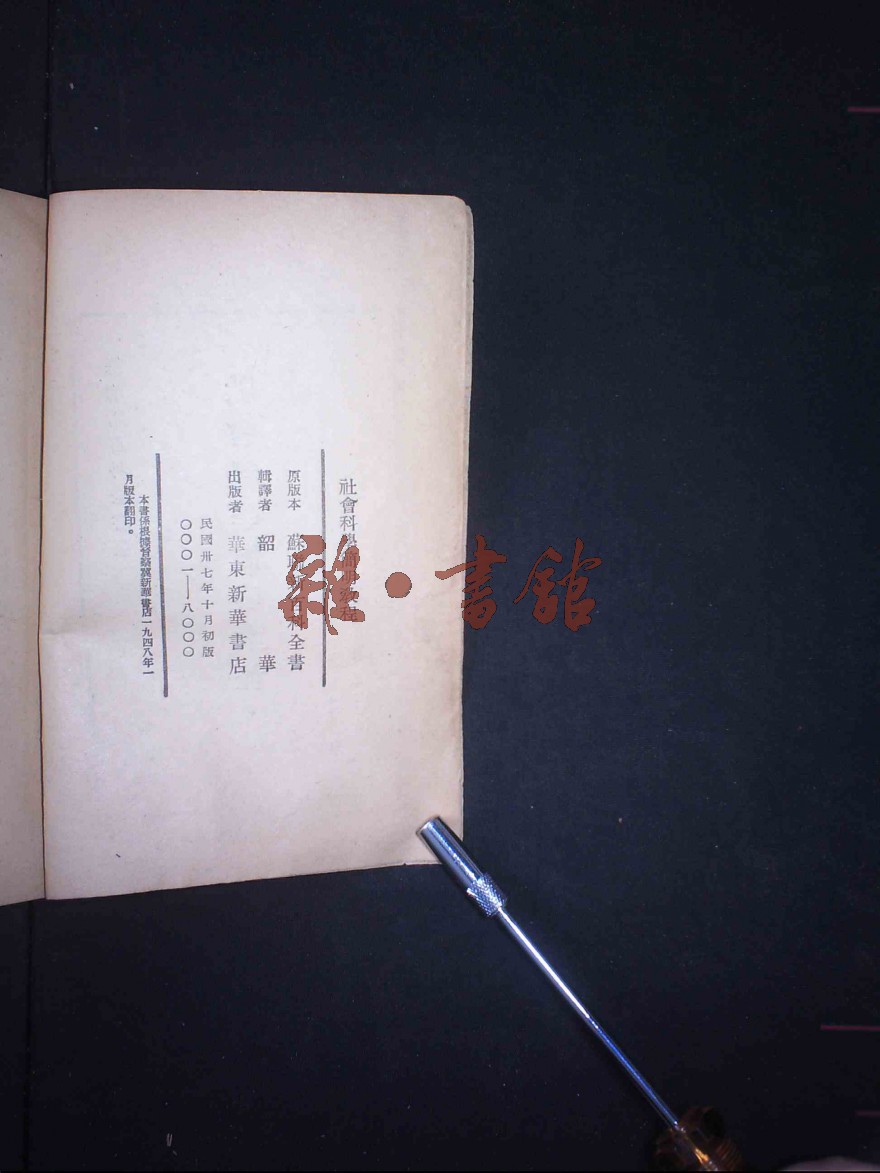 社會科學簡明敎程
原版本 蘇聯百科全書
輯譯者 韶華
出版者 華東新華書店
民國卅七年十月初版
〇〇〇一——八〇〇〇
本書係根據晉察冀新華書店一九四八年一
月版本翻印。
雜·書館